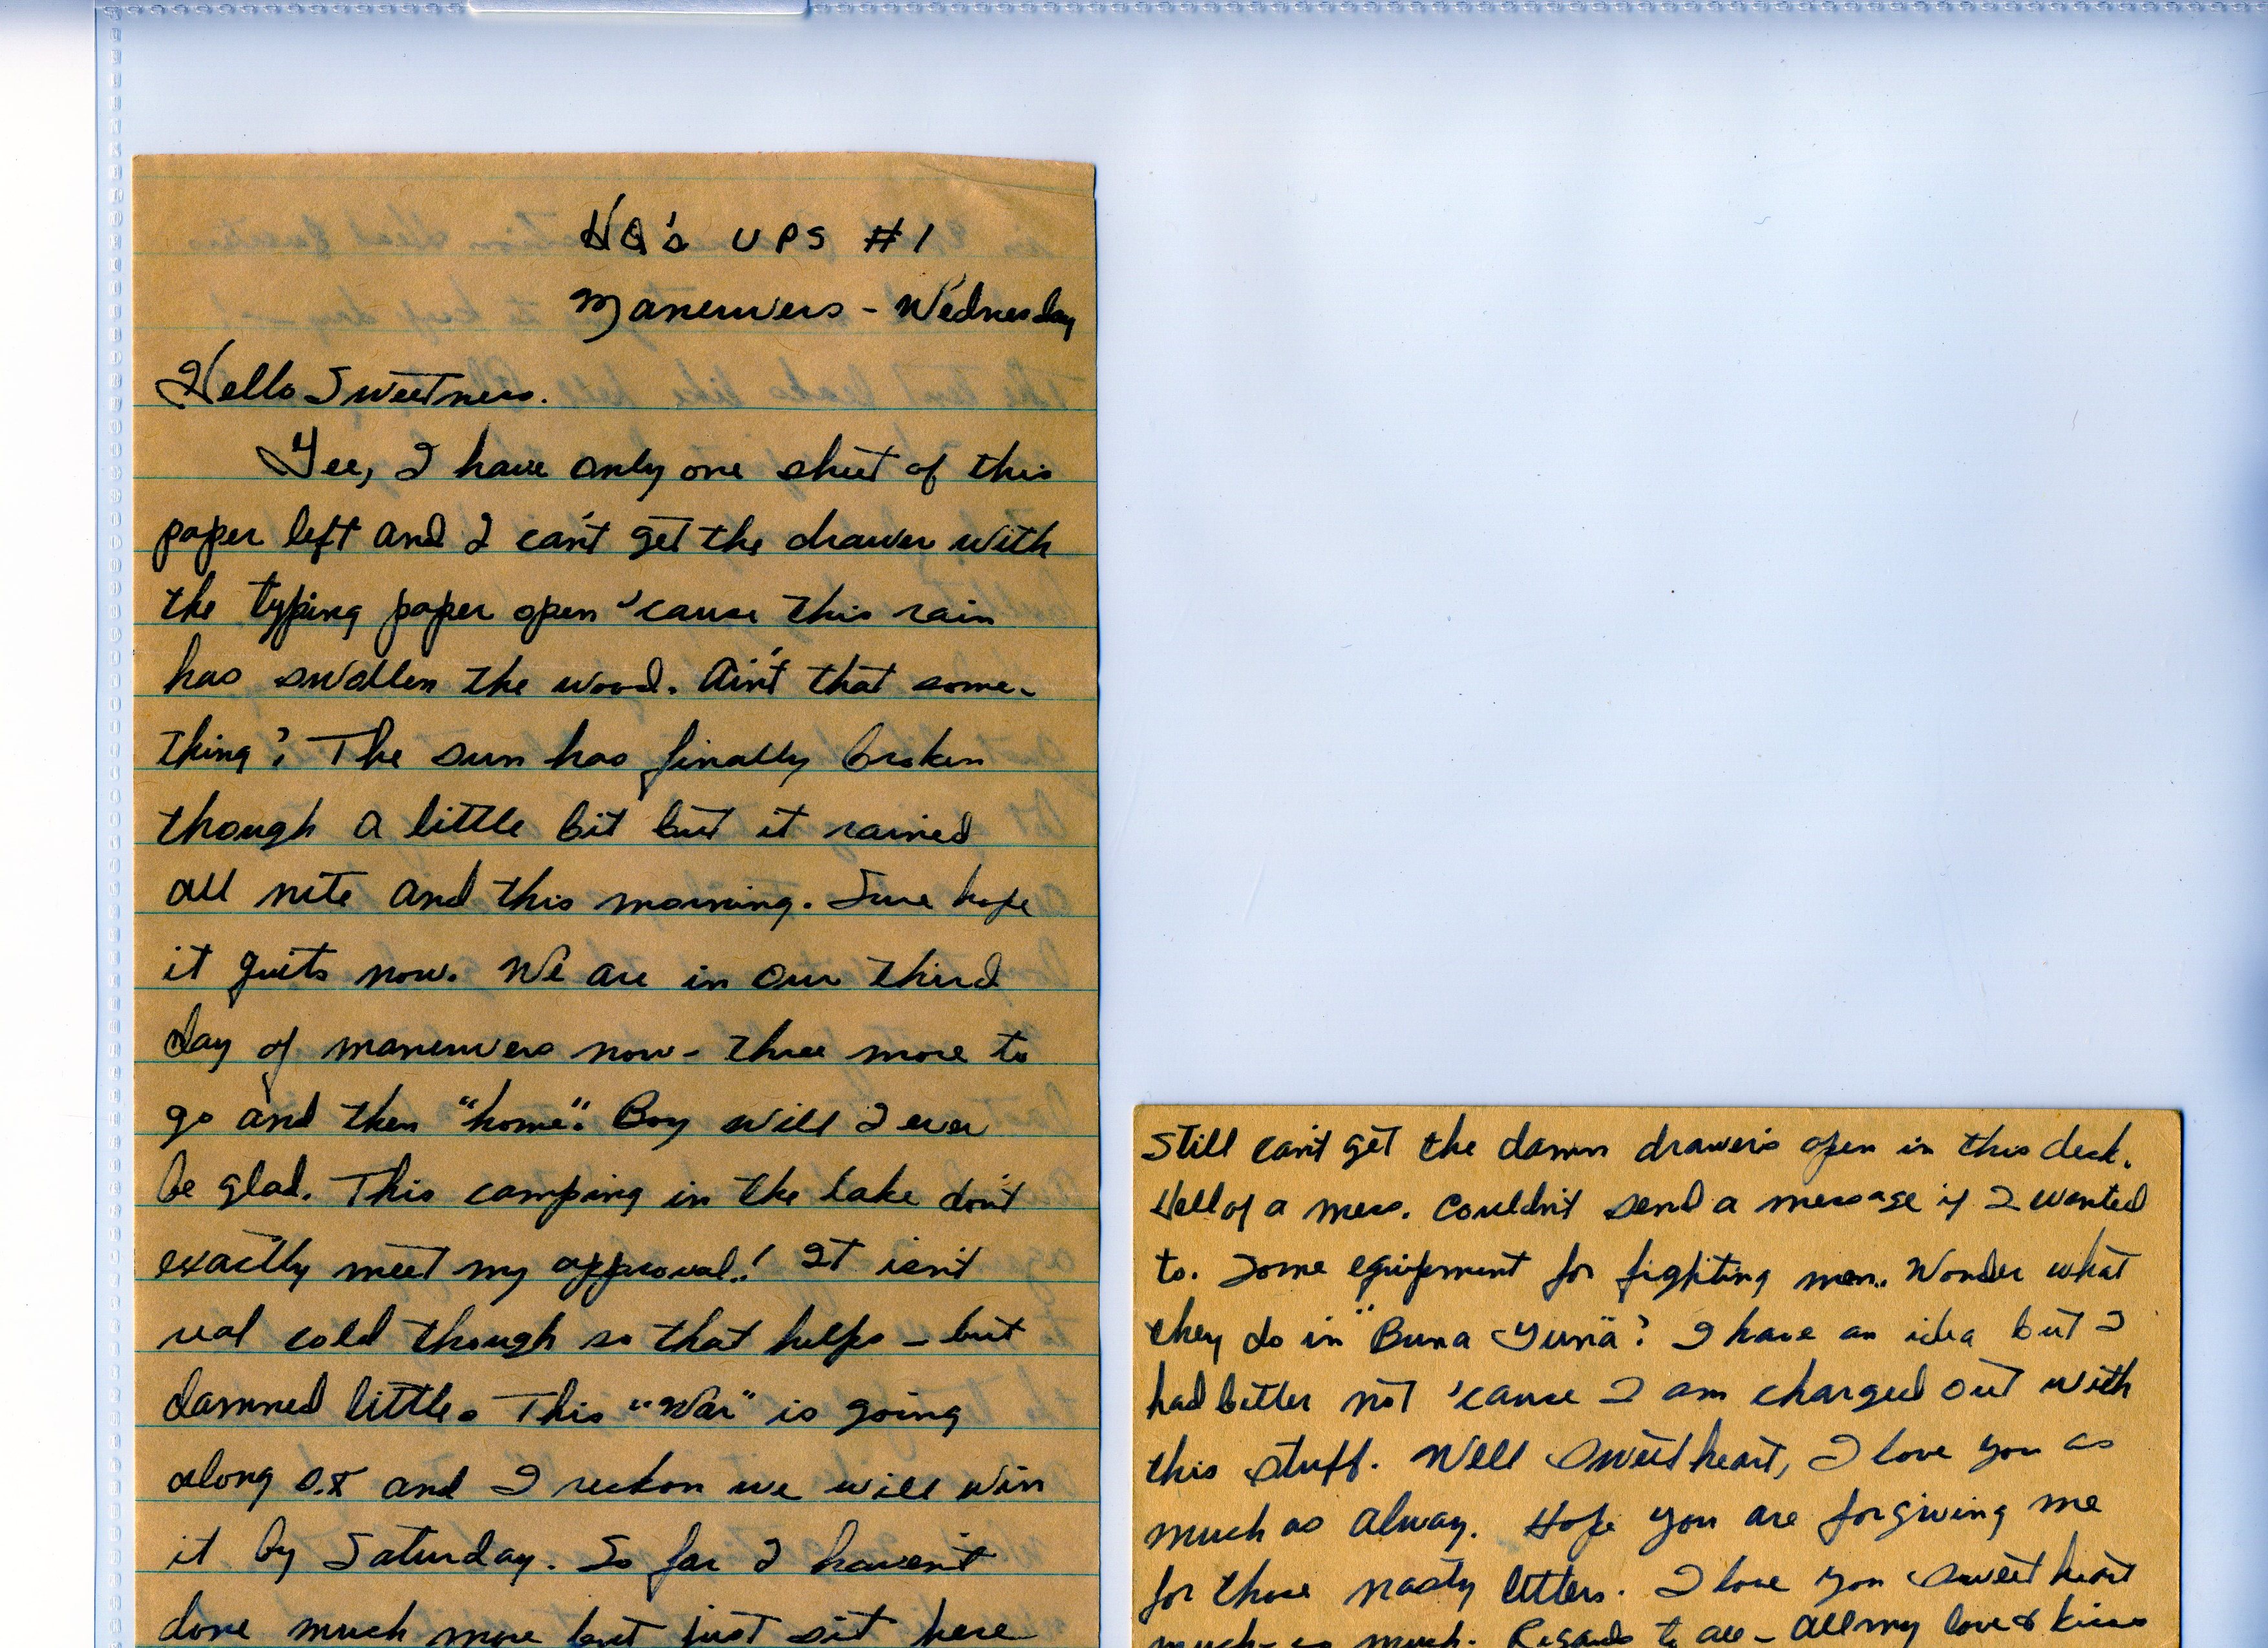 HQ's UPS #1
Maneuvers - Wednesday
Hello Sweetness.
Gee, I have only one sheet of this
paper left and I can't get the drawer with
the typing paper open 'cause this rain
has swollen the wood. Ain't that some-
thing? The sun has finally broken
though a little bit but it rained
all nite and this morning. Sure hope
it quits now. We are in our third
day of maneuvers now - three more to
go and then "home". Boy will I ever
be glad. This camping in the lake don't
exactly meet my approval! It isn't
real cold though so that helps - but
damned little. This "War" is going
along O.K and I reckon we will win
it by Saturday. So far I haven't
done much more but just sit here
Still can't get the damn drawers open in this desk.
Hell of a mess. Couldn't send a message if I wanted
to. Some equipment for fighting men. Wonder what
they do in "Buna Guna"? I have an idea but I
had better not 'cause I am charged out with
this stuff. Well Sweetheart, I love you as
much as alway. Hope you are forgiving me
for those nasty letters. I love you sweetheart
much - so much. Regards to all - All my love & kisses